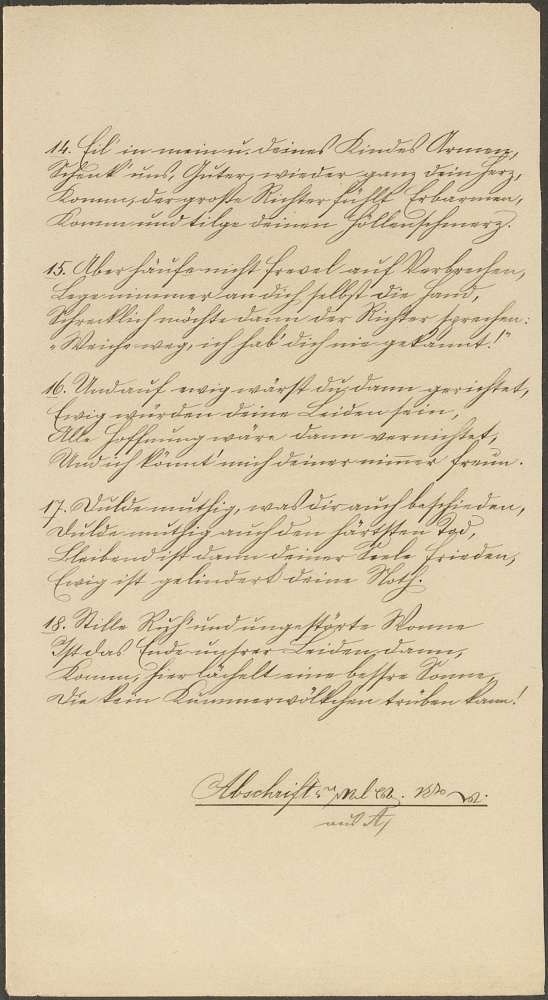 14. Eil' in mein u. deines Kindes Armen,
Schenk' uns, Guter, wieder ganz dein Herz,
Komm, der große Richter fühlt Erbarmen,
Komm und tilge deinen Höllenschmerz.
15. Aber häufe nicht Frevel auf Verbrechen,
Lege nimmer an dich selbst die Hand,
Schrecklich möchte dann der Richter sprechen:
"Weiche weg, ich hab' dich nie gekannt!"
16. Und auf ewig wärst du dann gerichtet,
Ewig würden deine Leiden sein,
Alle Hoffnung wäre dann vernichtet,
Und ich könnt' mich deiner nimmer freun.
17. Dulde muthig, was dir auch beschieden,
Dulde muthig auch den härtsten Tod,
Bleibend ist dann deiner Seele Frieden,
Ewig ist gelindert deine Noth.
18. Stille Ruh' und ungestörte Wonne
Ist das Ende unsrer Leiden dann,
Komm, hier lächelt eine bessre Sonne,
Die kein Kummerwölkchen trüben kann!
Abschrift
aus A